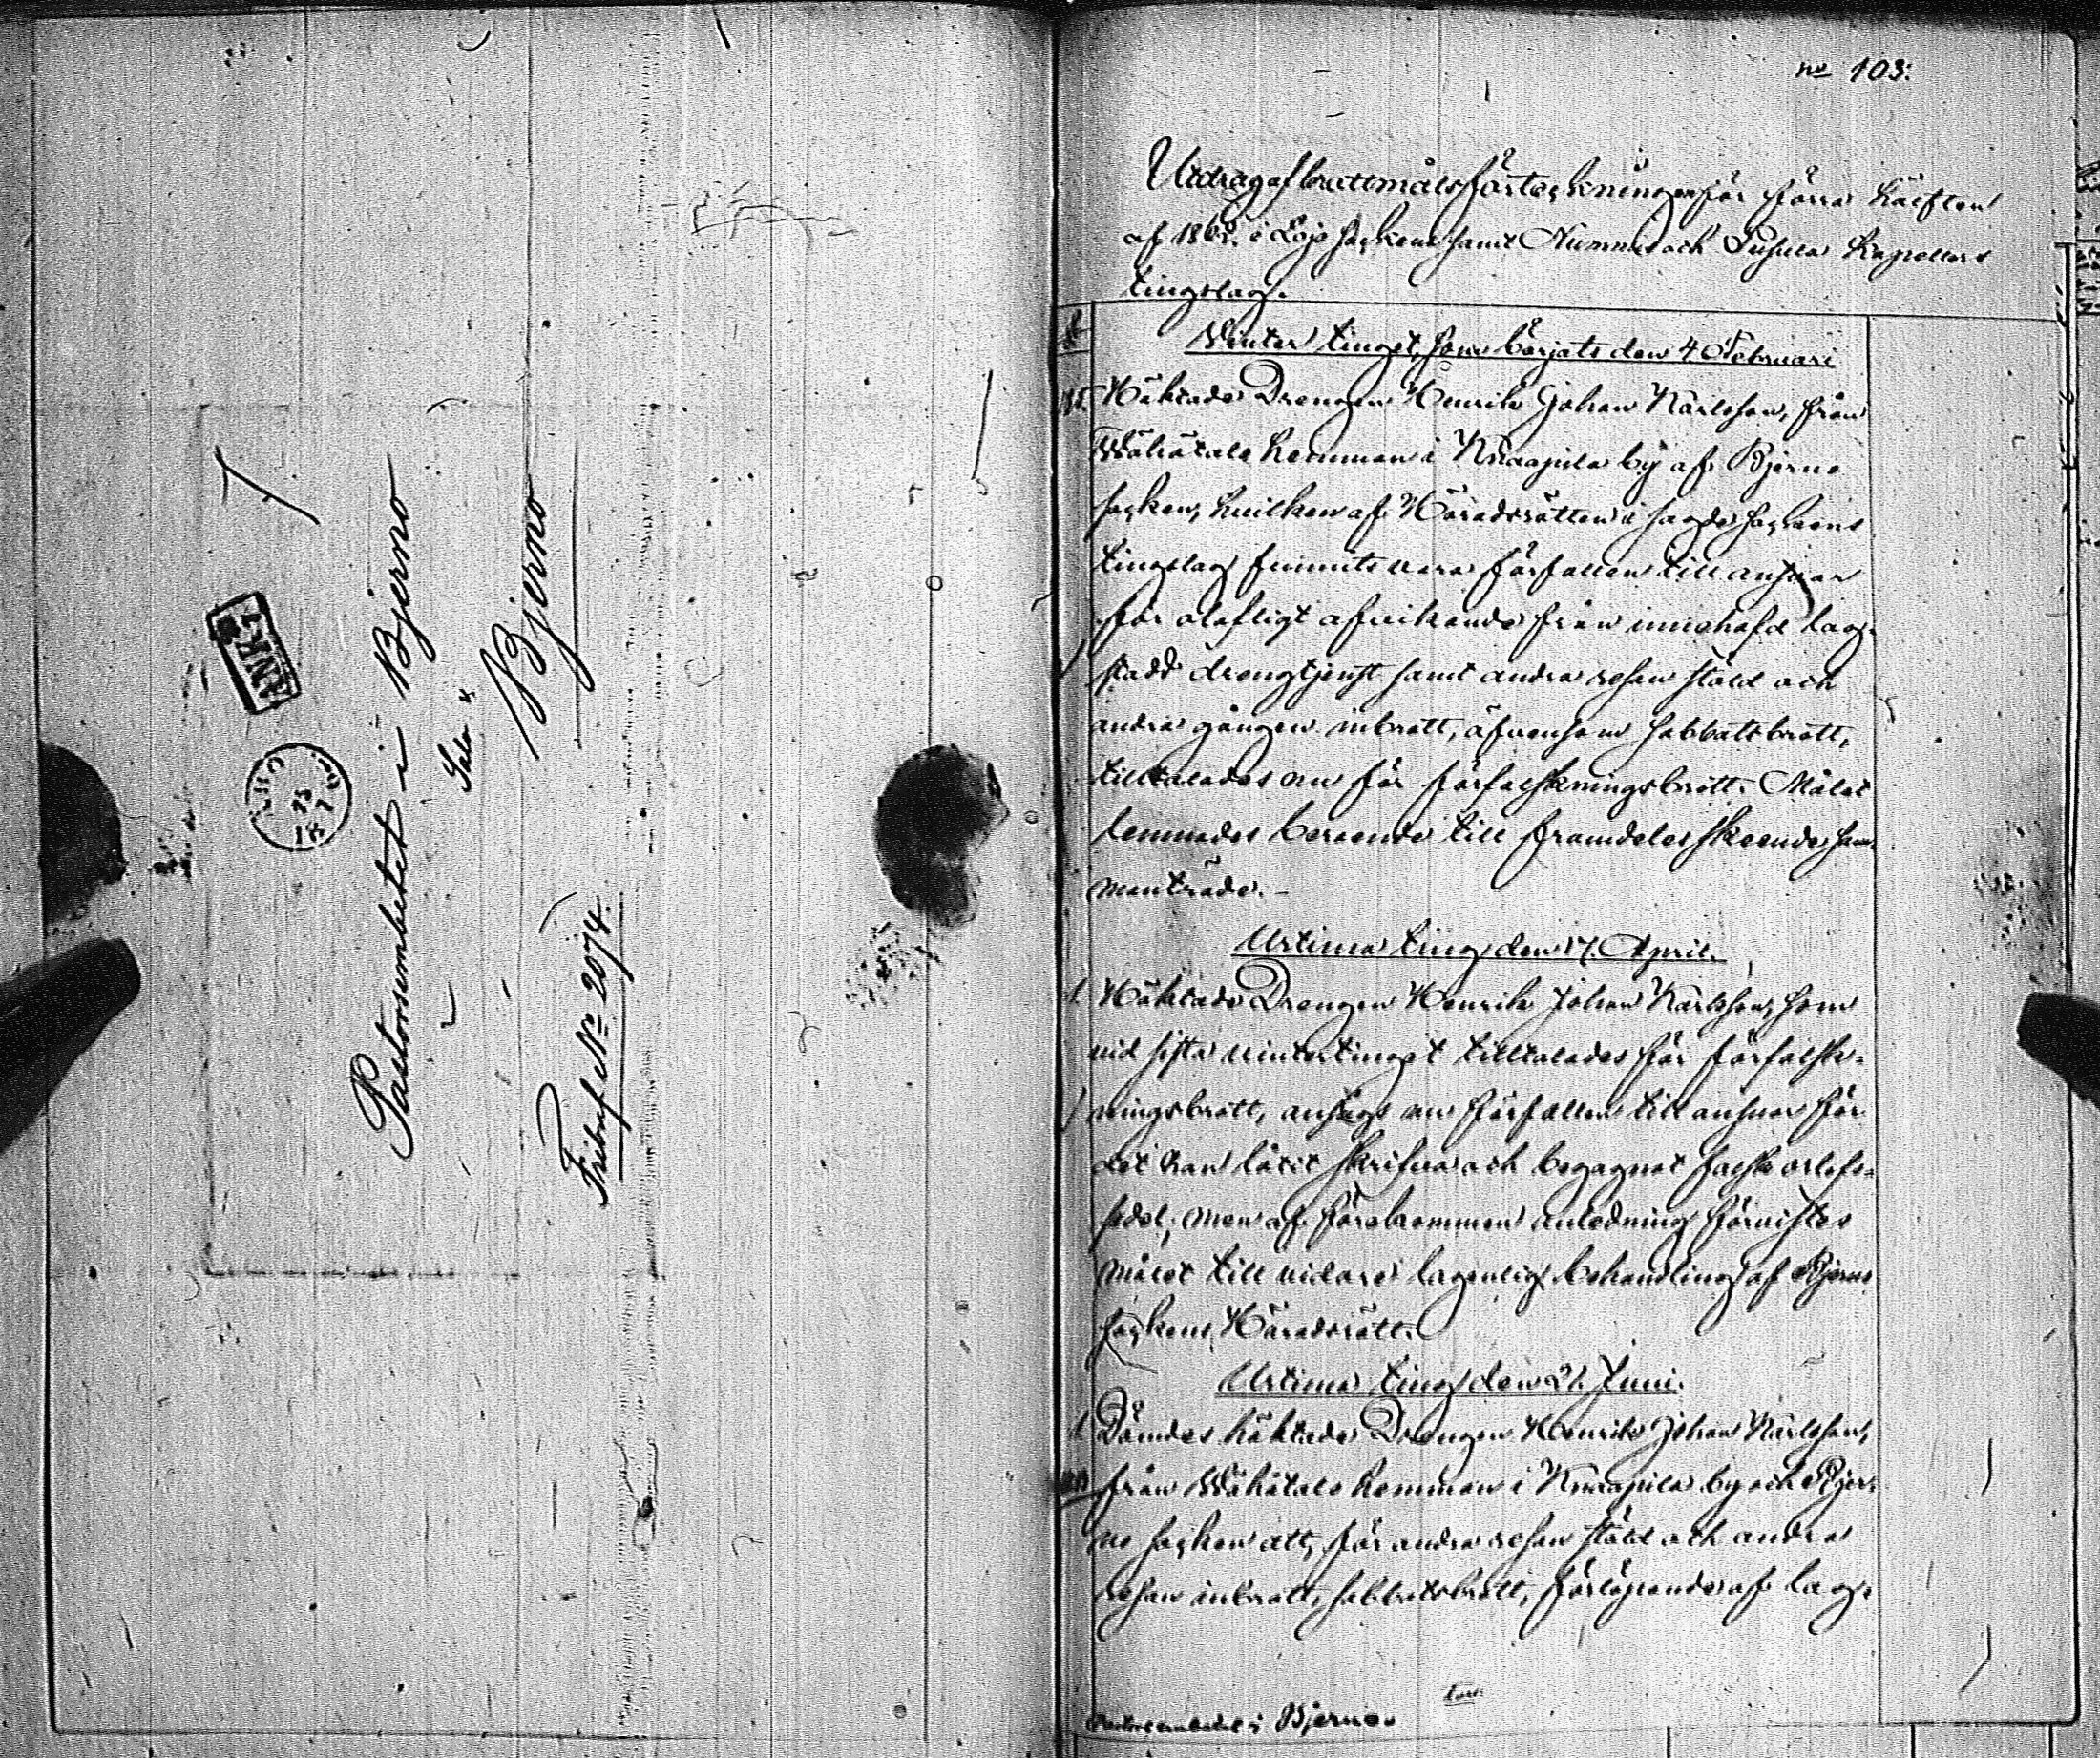 Pastorsembetet i Bjerno
Salo &
Bjerno
Fribref No 2074.
ANK
18
no 103:
Utdrag af brottmålsförteckningen för förra hälften
af 1862 i Lojo socken samt Nummis och Pusula Kapellers
tingslag.
Winter tinget, som börjats den 4 Februari
Häktade Drengen Henrik Johan Karlsson, från
Wähätalo hemman i Knaapila by af Bjerno
socken, hvilken af Häradsrätten i sagde sockens
tingslag funnits vara förfallen till ansvar
för olofligt afvikande från innehafd lag-
stadd drengtjenst samt andra resan stöld och
andra gången inbrott, äfvensom sabbatsbrott,
tilltalades nu för förfalskningsbrott. Målet
lemnades beroende till framdeles skeende sam-
manträde. -
Urtima ting den 17. April.
1. Häktade Drengen Henrik Johan Karlsson, som
vid sista vintertinget tilltalades för förfalsk-
ningsbrott, ansågs nu förfallen till ansvar för
det han låtit skrifva och begagnat falsk orlofs-
sedel; men af förekommen anledning förvistes
målet till vidare lagenlig behandling af Bjerno
sockens Häradsrätt.
Urtima ting den 21. Juni.
1. Dömdes häktade Drengen Henrik Johan Karlsson,
från Wähätalo hemman i Knaapila by och Bjer-
no socken att, för andra resan stöld och andra
resan inbrott, sabbatsbrott, förlöpande af lag-
Pastorsembetet i Bjerno.